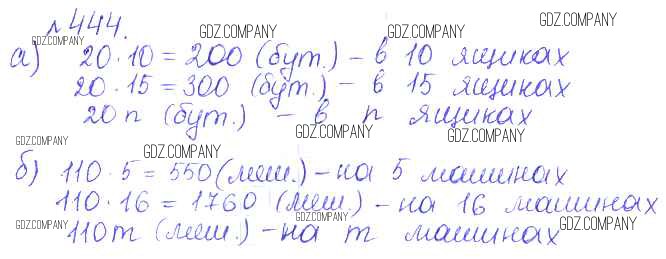 №444.
а) 20 · 10 = 200 (бут.) – в 10 ящиках
20 · 15 = 300 (бут.) – в 15 ящиках
20 n (бут.) – в n ящиках
б) 110 · 5 = 550 (меш.) – на 5 машинах
110 · 16 = 1760 (меш.) – на 16 машинах
110 m (меш.) – на m машинах
GDZ.COMPANY
GDZ.COMPANY
GDZ.COMPANY
GDZ.COMPANY
GDZ.COMPANY
GDZ.COMPANY
GDZ.COMPANY
GDZ.COMPANY
GDZ.COMPANY
GDZ.COMPANY
GDZ.COMPANY
GDZ.COMPANY
GDZ.COMPANY